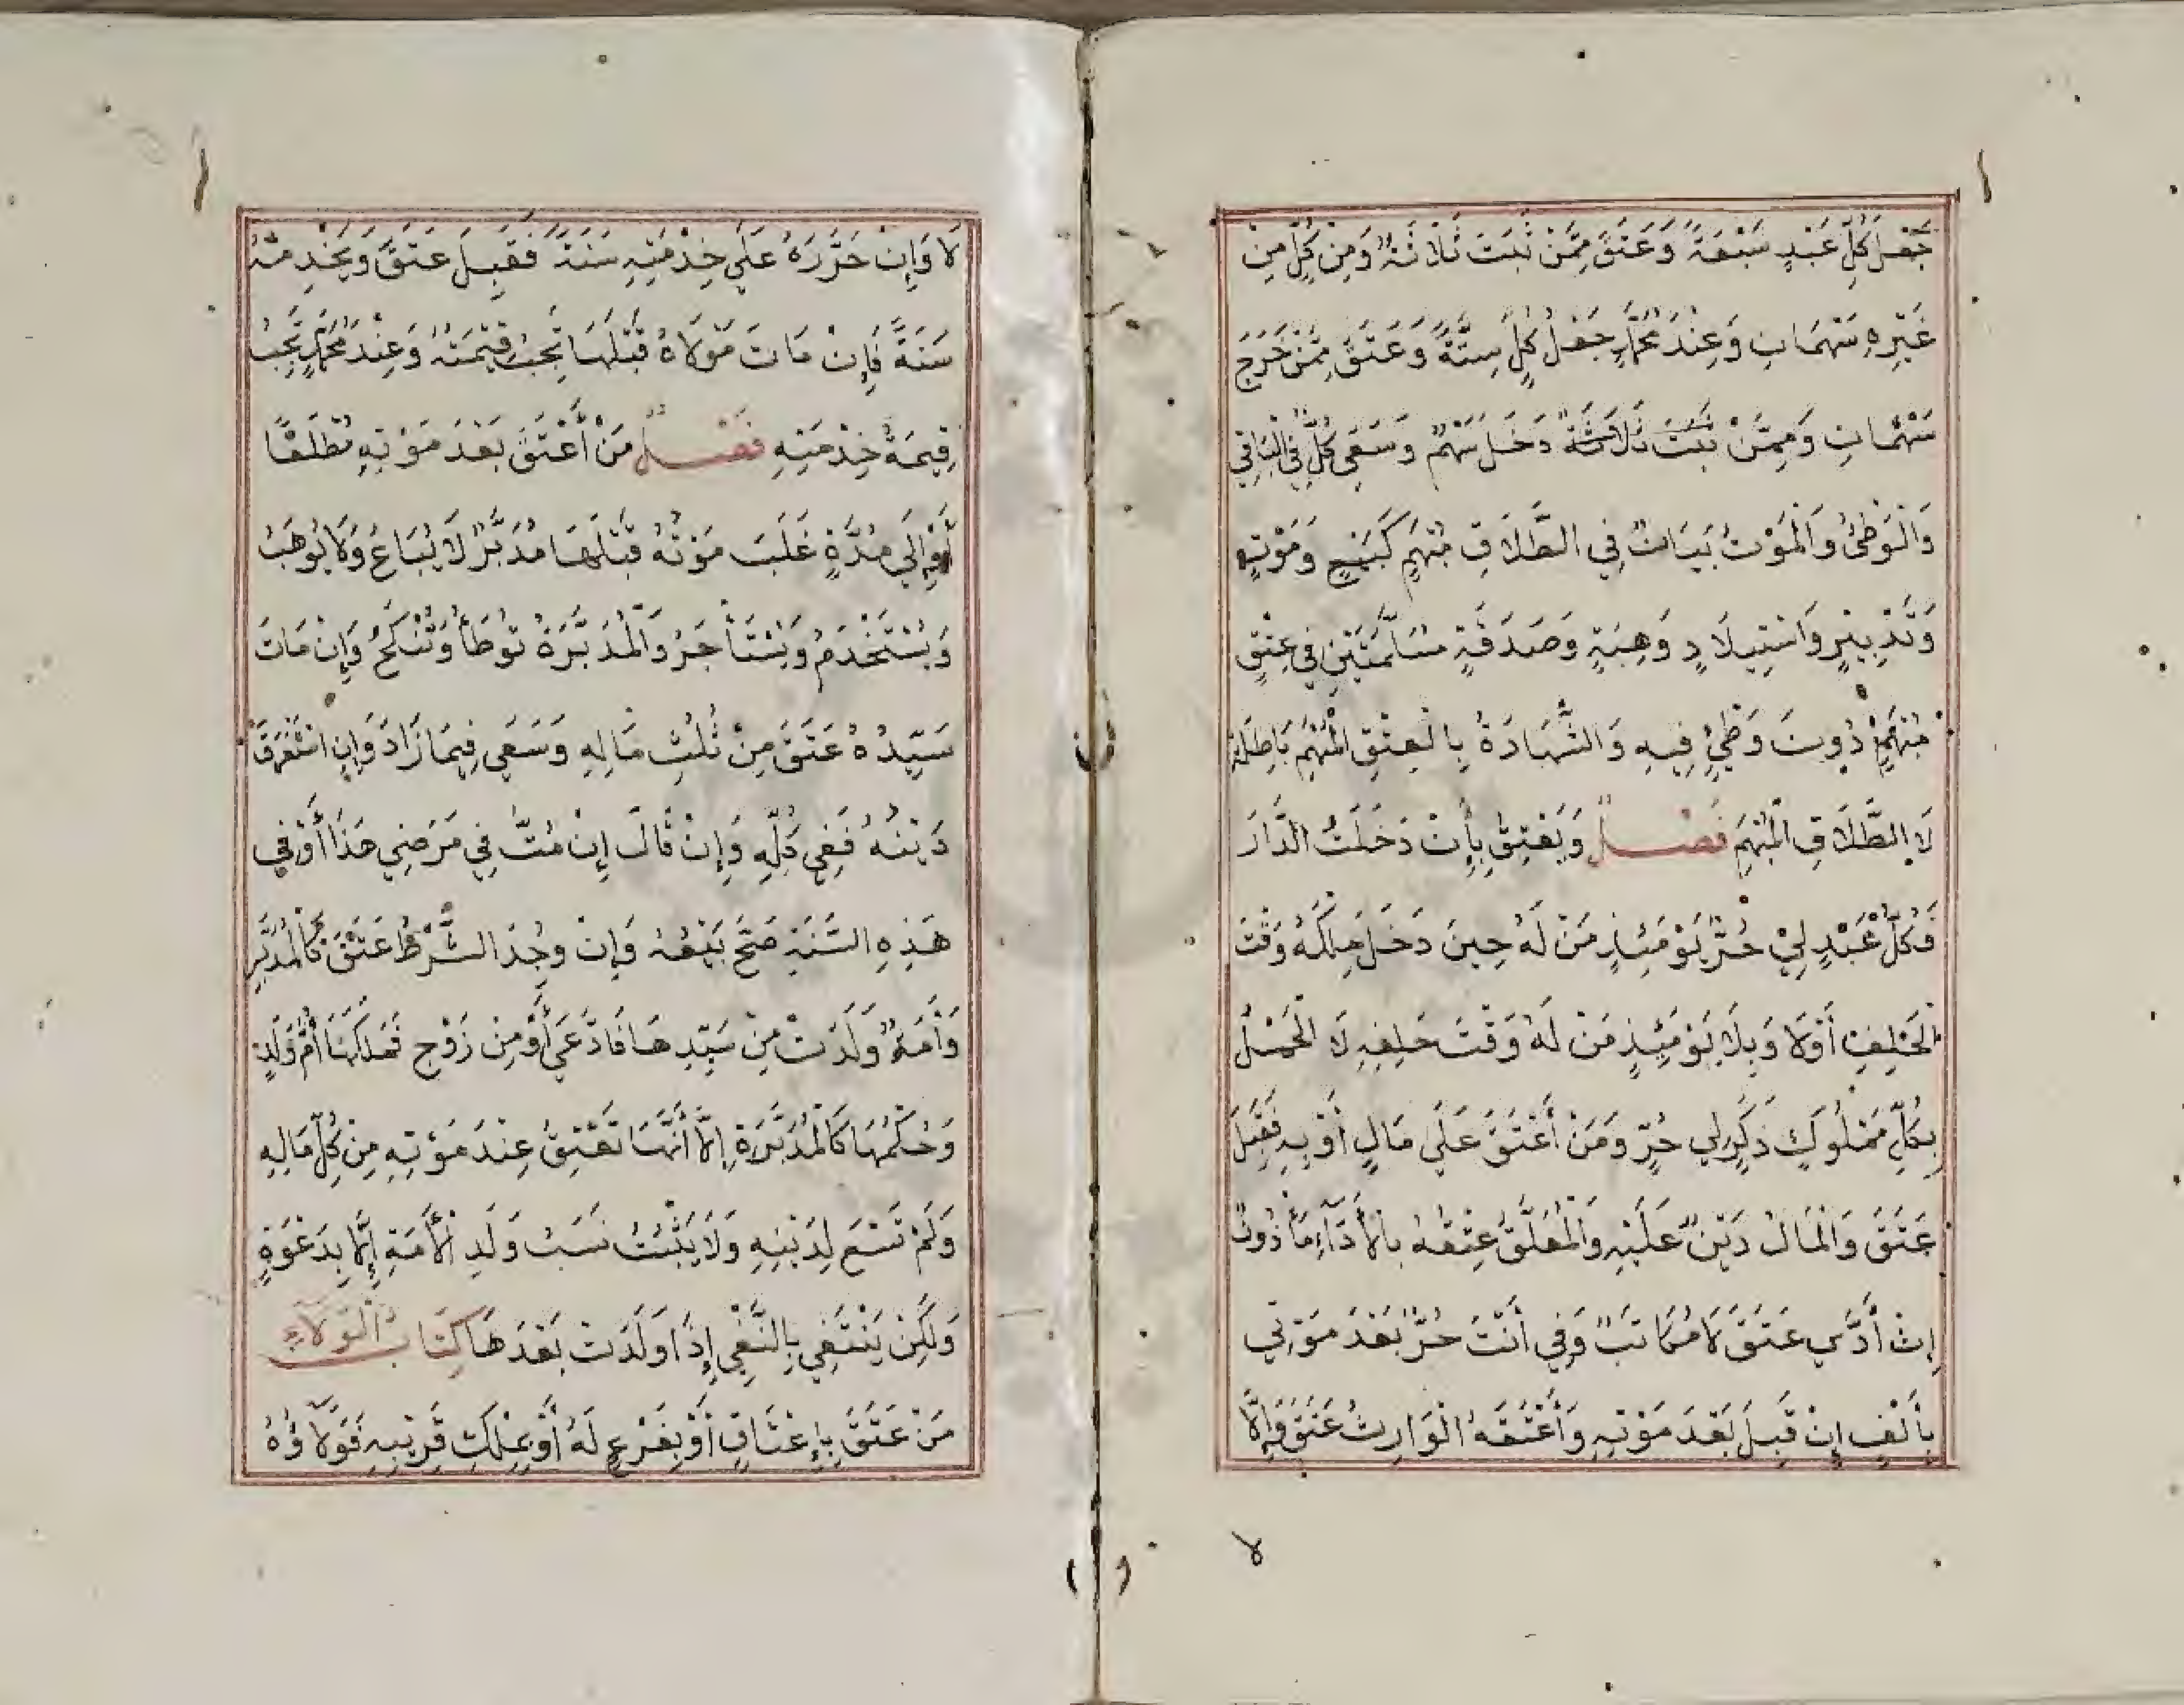 جُعِلَ كُلُّ عَبْدٍ سَبْعَةً وَعَتَقَ مِمَّنْ ثَبَتَ ثَلَاثَةٌ وَمِنْ كُلٍّ مِنْ
غَيْرِهِ سَهْمَانِ وَعِنْدَ مُحَمَّدٍ جُعِلَ كُلٌّ سِتَّةً وَعَتَقَ مِمَّنْ خَرَجَ
سَهْمَانِ وَمِمَّنْ ثَبَتَ ثَلَاثَةٌ دَخَلَ سَهْمٌ وَسَعَى كُلٌّ فِي الْبَاقِي
وَالْوَطْئُ وَالْمَوْتُ بَيَانٌ فِي الطَّلَاقِ مُبْهَمٍ كَبَيْعٍ وَمَوْتِهِ
وَتَدْبِيرٍ وَاسْتِيلَادٍ وَهِبَةٍ وَصَدَقَةٍ مُسَلَّمَتَيْنِ فِي عِتْقٍ
مُبْهَمٍ دُونَ وَطْئٍ فِيهِ وَالشَّهَادَةُ بِالْعِتْقِ الْمُبْهَمِ بَاطِلَةٌ
لَا الطَّلَاقِ الْمُبْهَمِ فَصْلٌ وَيَعْتِقُ بِإِنْ دَخَلْتُ الدَّارَ
فَكُلُّ عَبْدٍ لِيْ حُرٌّ يَوْمَئِذٍ مَنْ لَهُ حِينَ دَخَلَ مَلَكَهُ وَقْتَ
الْحَلِفِ أَوْلَا وَبِلَا يَوْمَئِذٍ مَنْ لَهُ وَقْتَ حَلِفِهِ لَا الْحَمْلُ
بِكُلِّ مَمْلُوكٍ ذَكَرٍ لِي حُرٌّ وَمَنْ أُعْتِقَ عَلَى مَالٍ أَوْ بِهِ فَقَبِلَ
عَتَقَ وَالْمَالُ دَيْنٌ عَلَيْهِ وَالْمُعَلَّقُ عِتْقُهُ بِالْأَدَاءِ مَأْذُونٌ
إِنْ أَدَّى عَتَقَ لَا مُكَاتَبٌ وَفِي أَنْتَ حُرٌّ بَعْدَ مَوْتِي
بِأَلْفٍ إِنْ قَبِلَ بَعْدَ مَوْتِهِ وَأَعْتَقَهُ الْوَارِثُ عَتَقَ وَإِلَّا
لا
لَا وَإِنْ حَرَّرَهُ عَلَى خِدْمَتِهِ سَنَةً فَقَبِلَ عَتَقَ وَيَخْدِمُهُ
سَنَةً فَإِنْ مَاتَ مَوْلَاهُ قَبْلَهَا تَجِبُ قِيْمَتُهُ وَعِنْدَ مُحَمَّدٍ تَجِبُ
قِيمَةُ خِدْمَتِهِ فَصْلٌ مَنْ أُعْتِقَ بَعْدَ مَوْتِهِ مُطْلَقًا
أَوْ إِلَى مُدَّةٍ غَلَبَ مَوْتُهُ قَبْلَهَا مُدَبَّرٌ لَا يُبَاعُ وَلَا يُوهَبُ
وَيُسْتَخْدَمُ وَيُسْتَأْجَرُ وَالْمُدَبَّرَةُ تُوطَأُ وَتُنْكَحُ وَإِنْ مَاتَ
سَيِّدُهُ عَتَقَ مِنْ ثُلُثِ مَالِهِ وَسَعَى فِيمَا زَادَ وَإِنِ اسْتَغْرَقَ
دَيْنُهُ فَفِي كُلِّهِ وَإِنْ قَالَ إِنْ مُتُّ فِي مَرَضِي هَذَا أَوْ فِي
هَذِهِ السَّنَةِ صَحَّ بَيْعُهُ وَإِنْ وُجِدَ الشَّرْطُ عَتَقَ كَالْمُدَبَّرِ
وَأَمَةٌ وَلَدَتْ مِنْ سَيِّدِهَا فَادَّعَى أَوْ مِنْ زَوْجٍ فَمَلَكَهَا أُمُّ وَلَدٍ
وَحُكْمُهَا كَالْمُدَبَّرَةِ إِلَّا أَنَّهَا تَعْتِقُ عِنْدَ مَوْتِهِ مِنْ كُلِّ مَالِهِ
وَلَمْ تَسْعَ لِدَيْنِهِ وَلَا يَثْبُتُ نَسَبُ وَلَدِ الْأَمَةِ إِلَّا بِدَعْوَةٍ
وَلَكِنْ يَنْتَفِي بِالنَّفْيِ إِذَا وَلَدَتْ بَعْدَهَا كِتَابُ الْوَلَاءِ
مَنْ عَتَقَ بِإِعْتَاقٍ أَوْ بِفَرْعٍ لَهُ أَوْ بِمِلْكِ قَرِيبِهِ فَوَلَاؤُهُ